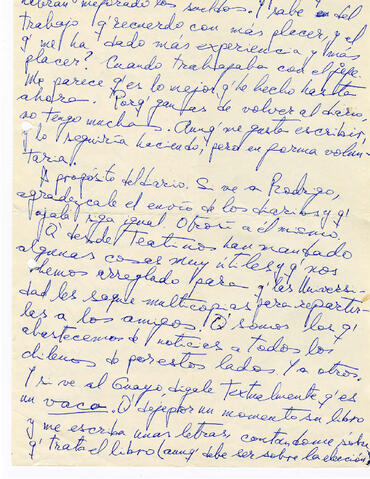 habrán mejorado los sueldos. Y sabe del
trabajo q' recuerdo con más placer, y el
q' me ha dado más experiencia y más
placer? Cuando trabajaba con el jefe.
Me parece q' es lo mejor q' he hecho hasta
ahora. Porq' ganas de volver al diario,
no tengo muchas. Aunq' me gusta escribir,
y lo seguiría haciendo, pero en forma volun-
taria.
A propósito del diario. Si ve a Rodrigo,
agradézcale el envío de los diarios y q'
ojalá siga igual. Otrosí a el mismo
Q' desde Teatinos han mandado
algunas cosas muy útiles y q' nos
hemos arreglado para q' les Universi-
dad les saque multicopias para repartir-
les a los amigos. Q' somos los q'
abastecemos de noticias a todos los
chilenos de por estos lados. Y a otros.
Y si ve al Guayo, dígale textualmente q' es
un vaca. Q' deje por un momento su libro
y me escriba unas letras contándome sobre
q' trata el libro (aunq' debe ser sobre la elección)